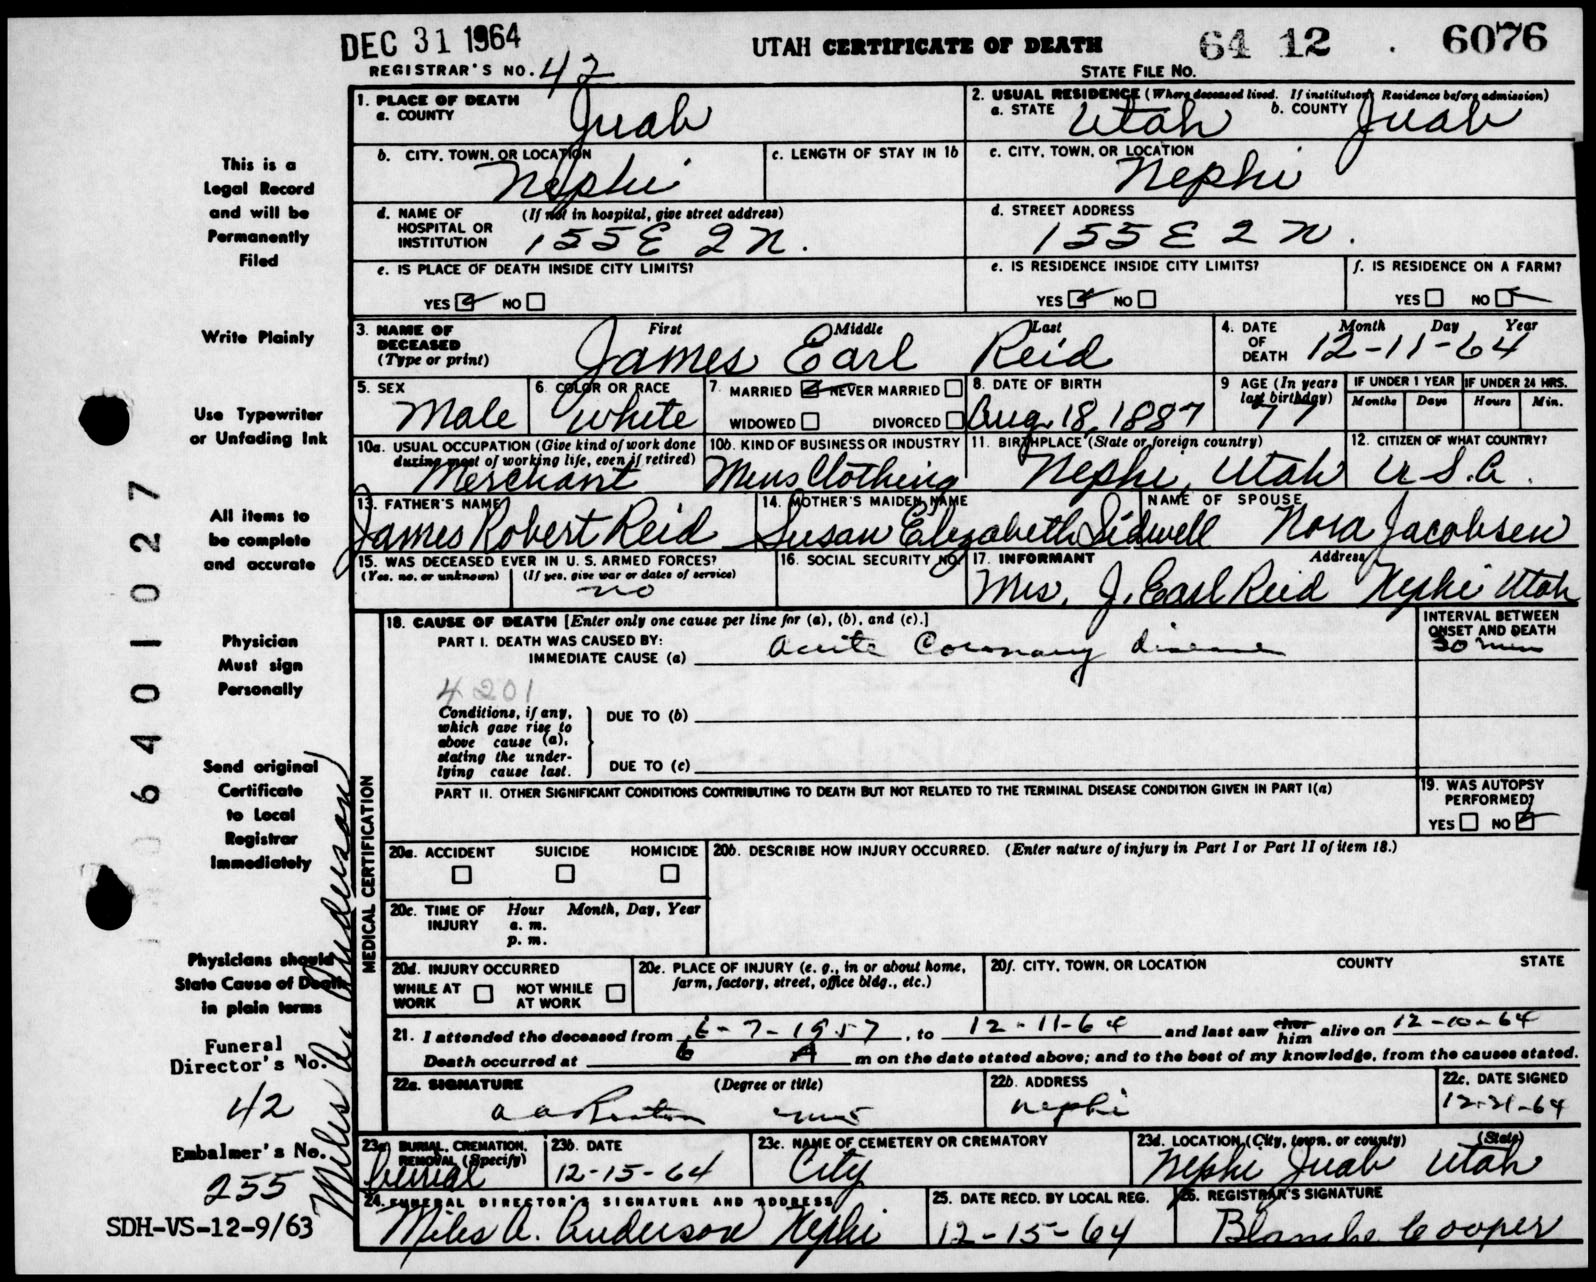 DEC 31 1964
UTAH CERTIFICATE OF DEATH 64 12 . 6076
REGISTRAR'S NO. 42
STATE FILE No.
This is a
Legal Record
and will be
Permanently
Filed
Write Plainly
Use Typewriter
or Unfading Ink
All items to
be complete
and accurate
Physician
Must sign
Personally
Send original
Certificate
to Local
Registrar
Immediately
Physicians should
State Cause of Death
in plain terms
Funeral
Director's No.
42
Embalmer's No.
255
SDH-VS-12-9/63
640 1 027
Miles A. Anderson
1. PLACE OF DEATH
a. COUNTY Juab
2. USUAL RESIDENCE (Where deceased lived. If institution: Residence before admission)
a. STATE Utah b. COUNTY Juab
b. CITY, TOWN, OR LOCATION Nephi
c. LENGTH OF STAY IN 1b
c. CITY, TOWN, OR LOCATION Nephi
d. NAME OF HOSPITAL OR INSTITUTION (If not in hospital, give street address) 155 E 2 N.
d. STREET ADDRESS 155 E 2 N.
e. IS PLACE OF DEATH INSIDE CITY LIMITS?
YES NO
e. IS RESIDENCE INSIDE CITY LIMITS?
YES NO
f. IS RESIDENCE ON A FARM?
YES NO
3. NAME OF DECEASED (Type or print) First Middle Last
James Earl Reid
4. DATE OF DEATH Month Day Year
12-11-64
5. SEX Male
6. COLOR OR RACE White
7. MARRIED NEVER MARRIED
WIDOWED DIVORCED
8. DATE OF BIRTH Aug. 18, 1887
9 AGE (In years last birthday) 77
IF UNDER 1 YEAR Months Days
IF UNDER 24 HRS. Hours Min.
10a. USUAL OCCUPATION (Give kind of work done during most of working life, even if retired)
Merchant
10b. KIND OF BUSINESS OR INDUSTRY
Mens Clothing
11. BIRTHPLACE (State or foreign country)
Nephi, Utah
12. CITIZEN OF WHAT COUNTRY?
U.S.A.
13. FATHER'S NAME
James Robert Reid
14. MOTHER'S MAIDEN NAME
Susan Elizabeth Sidwell
NAME OF SPOUSE
Nora Jacobsen
15. WAS DECEASED EVER IN U.S. ARMED FORCES?
(Yes, no, or unknown) (If yes, give war or dates of service)
no
16. SOCIAL SECURITY NO.
17. INFORMANT Address
Mrs. J. Earl Reid Nephi Utah
MEDICAL CERTIFICATION
18. CAUSE OF DEATH [Enter only one cause per line for (a), (b), and (c).]
INTERVAL BETWEEN ONSET AND DEATH
PART I. DEATH WAS CAUSED BY:
IMMEDIATE CAUSE (a) Acute Coronary disease
30 min
4201
Conditions, if any, which gave rise to above cause (a), stating the underlying cause last.
DUE TO (b)
DUE TO (c)
PART II. OTHER SIGNIFICANT CONDITIONS CONTRIBUTING TO DEATH BUT NOT RELATED TO THE TERMINAL DISEASE CONDITION GIVEN IN PART I(a)
19. WAS AUTOPSY PERFORMED?
YES NO
20a. ACCIDENT SUICIDE HOMICIDE
20b. DESCRIBE HOW INJURY OCCURRED. (Enter nature of injury in Part I or Part II of item 18.)
20c. TIME OF INJURY Hour Month, Day, Year
a. m.
p. m.
20d. INJURY OCCURRED
WHILE AT WORK NOT WHILE AT WORK
20e. PLACE OF INJURY (e. g., in or about home, farm, factory, street, office bldg., etc.)
20f. CITY, TOWN, OR LOCATION COUNTY STATE
21. I attended the deceased from 6-7-1957, to 12-11-64 and last saw her him alive on 12-10-64
Death occurred at 6 A m on the date stated above; and to the best of my knowledge, from the causes stated.
22a. SIGNATURE (Degree or title)
22b. ADDRESS
Nephi
22c. DATE SIGNED
12-21-64
23a. BURIAL, CREMATION, REMOVAL (Specify)
burial
23b. DATE
12-15-64
23c. NAME OF CEMETERY OR CREMATORY
City
23d. LOCATION (City, town, or county) (State)
Nephi Juab Utah
24. FUNERAL DIRECTOR'S SIGNATURE AND ADDRESS
Miles A. Anderson Nephi
25. DATE RECD. BY LOCAL REG.
12-15-64
26. REGISTRAR'S SIGNATURE
Blanche Cooper